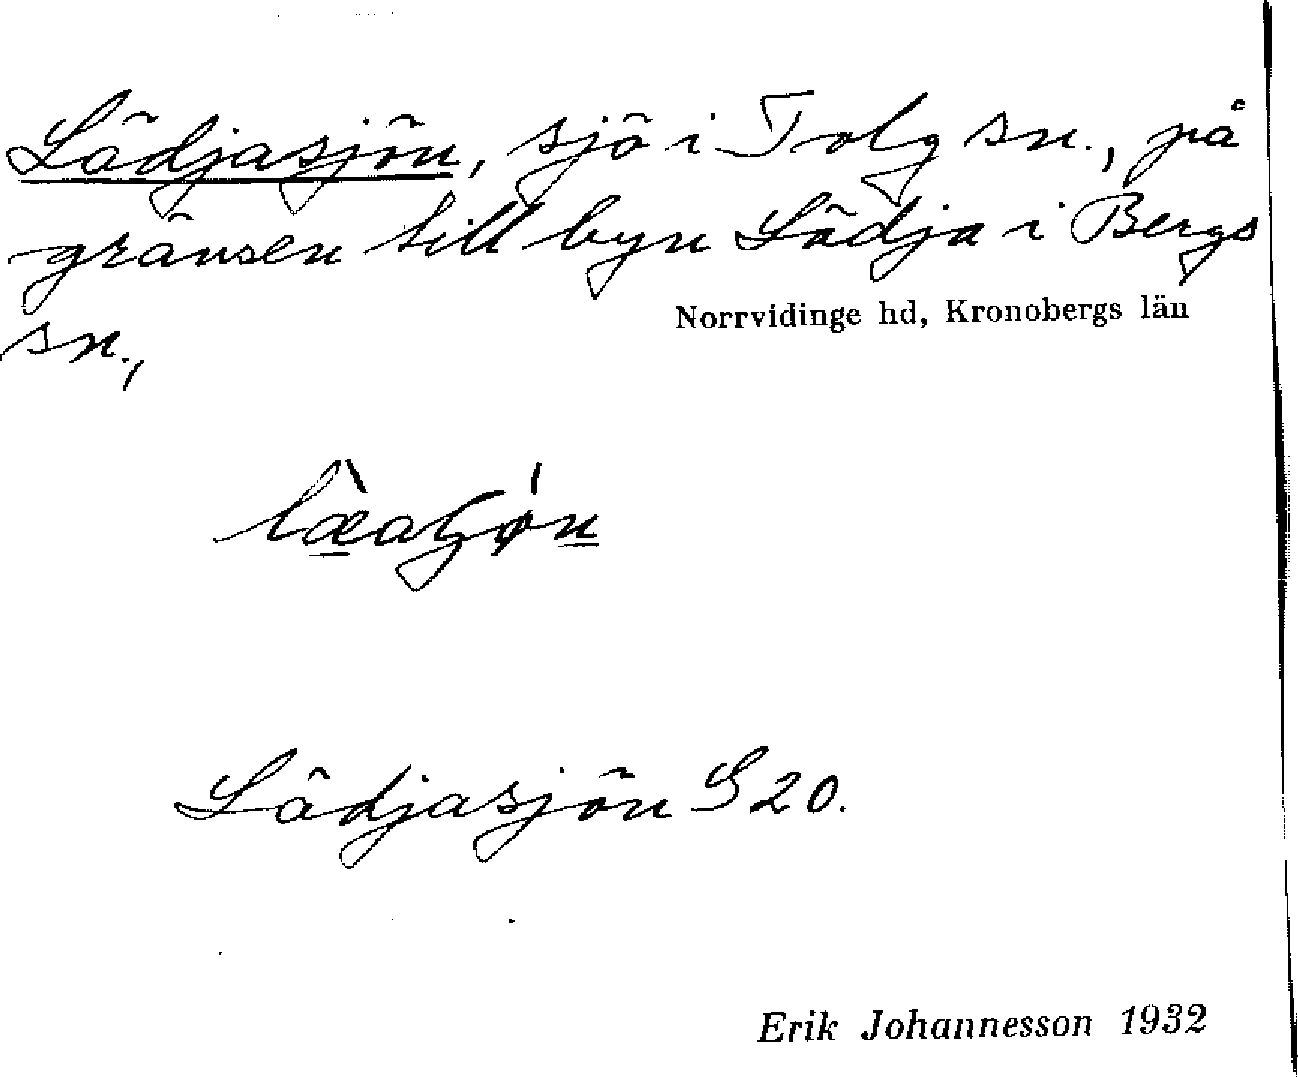 Lädjasjön, sjö i Tolg sn., på
gränsen till byn Lädja i Bergs
Norrvidinge hd, Kronobergs län
sn.,
Lädjasjön S 20.
Erik Johannesson 1932